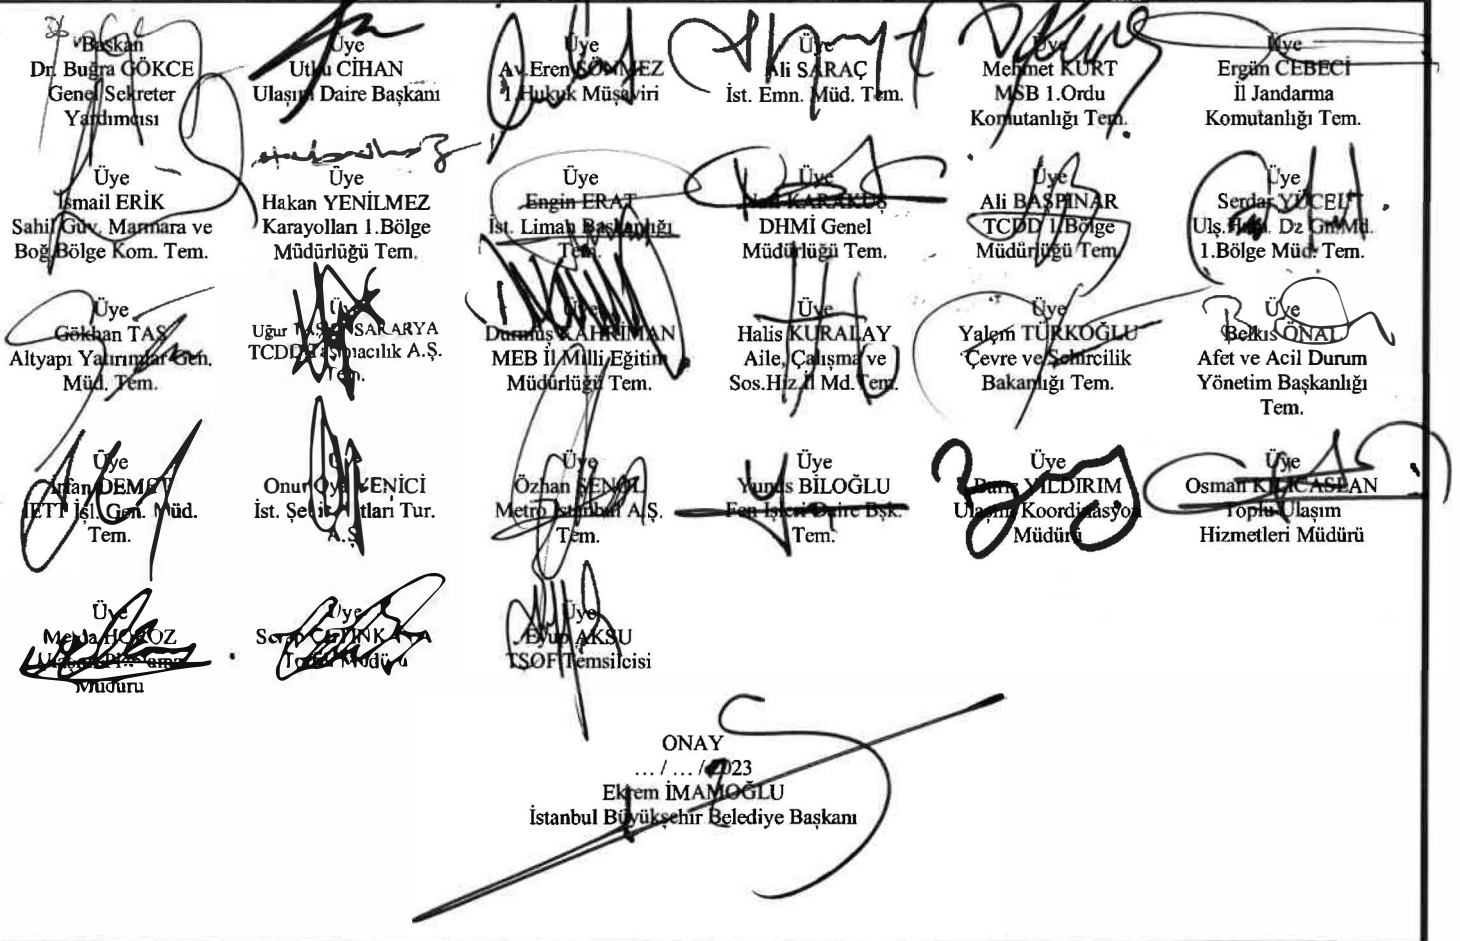 Başkan
Dr. Buğra GÖKCE
Genel Sekreter
Yardımcısı
Üye
Utku CİHAN
Ulaşım Daire Başkanı
Üye
Av.Eren SÖNMEZ
1.Hukuk Müşaviri
Üye
Ali SARAÇ
İst. Emn. Müd. Tem.
Üye
Mehmet KURT
MSB 1.Ordu
Komutanlığı Tem.
Üye
Ergün CEBECİ
İl Jandarma
Komutanlığı Tem.
Üye
İsmail ERİK
Sahil Güv. Marmara ve
Boğ.Bölge Kom. Tem.
Üye
Hakan YENİLMEZ
Karayolları 1.Bölge
Müdürlüğü Tem.
Üye
Engin ERAT
İst. Liman Başkanlığı
Tem.
Üye
KARAKUŞ
DHMİ Genel
Müdürlüğü Tem.
Üye
Ali BAŞPINAR
TCDD 1.Bölge
Müdürlüğü Tem.
Üye
Serdar YÜCELT
Ulş. Dz Gn.Md.
1.Bölge Müd. Tem.
Üye
Gökhan TAŞ
Altyapı Yatırımlar Gen.
Müd. Tem.
Üye
Uğur SAKARYA
TCDD Taşımacılık A.Ş.
Tem.
Üye
Durmuş KAHRİMAN
MEB İl Milli Eğitim
Müdürlüğü Tem.
Üye
Halis KURALAY
Aile, Çalışma ve
Sos.Hiz.İl Md.Tem.
Üye
Yalçın TÜRKOĞLU
Çevre ve Şehircilik
Bakanlığı Tem.
Üye
Belkıs ÖNAL
Afet ve Acil Durum
Yönetim Başkanlığı
Tem.
Üye
İrfan DEMET
İETT İşl. Gen. Müd.
Tem.
Onur YENİCİ
İst. Şehir Hatları Tur.
A.Ş.
Üye
Özhan ŞENOL
Metro İstanbul A.Ş.
Tem.
Üye
Yunus BİLOĞLU
Fen İşleri Daire Bşk.
Tem.
Üye
Barış YILDIRIM
Ulaşım Koordinasyon
Müdürü
Üye
Osman KILIÇASLAN
Toplu Ulaşım
Hizmetleri Müdürü
Üye
HOROZ
Ulaşım Planlama
Müdürü
Üye
Serap ÇETİNKAYA
Müdürü
Üye
Eyüp AKSU
TSOF Temsilcisi
ONAY
… / … / 2023
Ekrem İMAMOĞLU
İstanbul Büyükşehir Belediye Başkanı